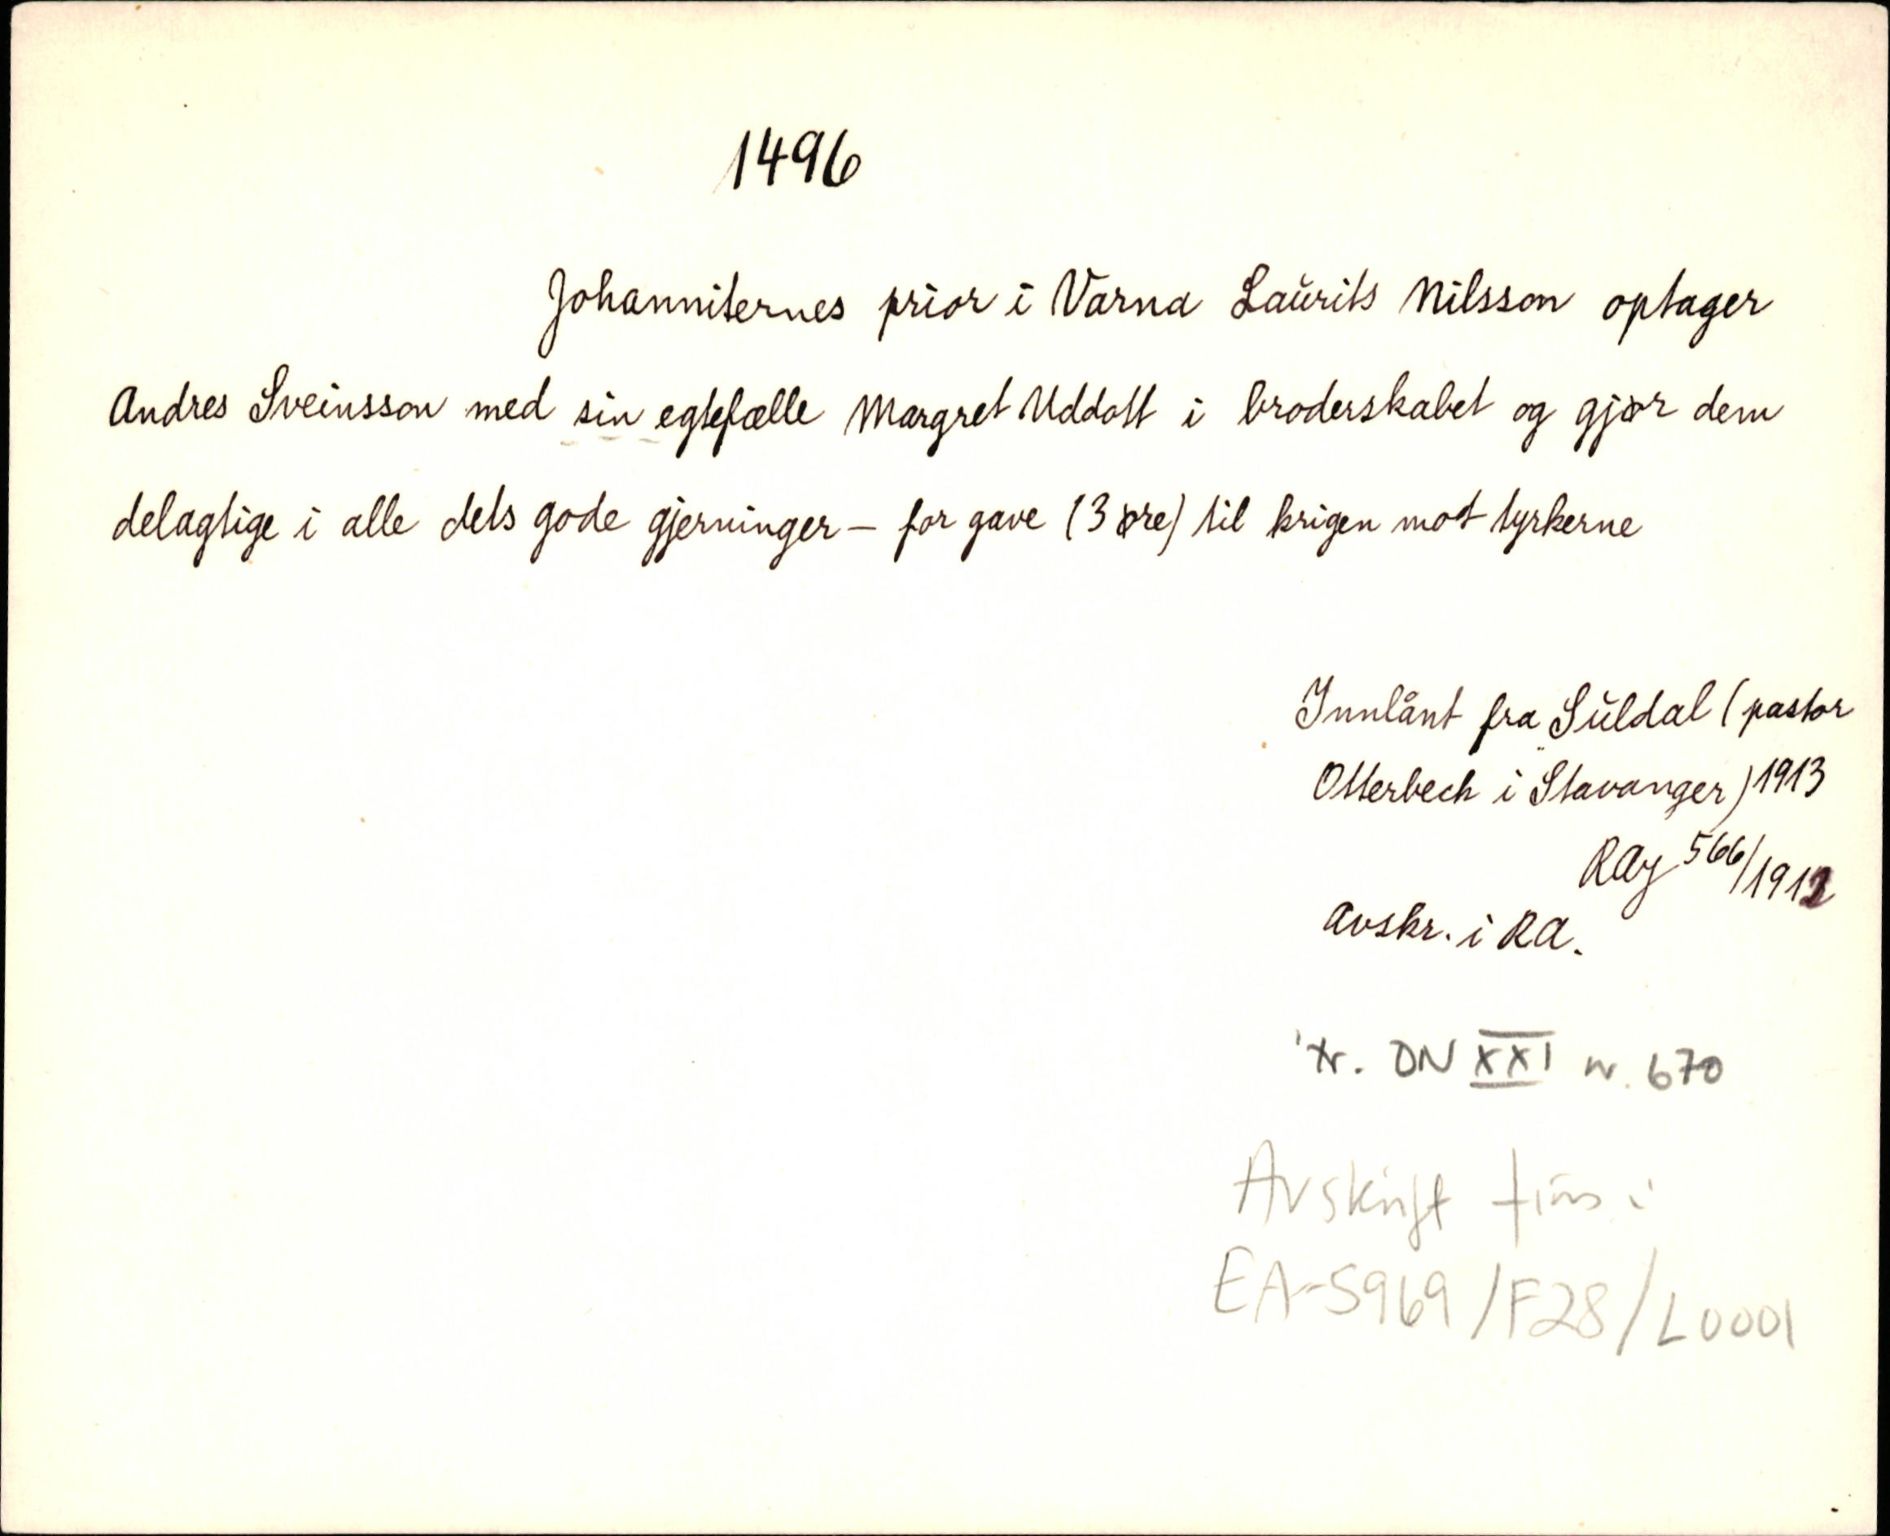 1496
Johanniternes prior i Varna Laurits Nilsson optager
Andres Sveinsson med sin egtefælle Margret Uddott i broderskabet og gjør dem
delagtige i alle dets gode gjerninger – for gave (3 øre) til krigen mot tyrkerne
Innlånt fra Suldal (pastor
Otterbech i Stavanger) 1913
RAj 566/1912
Avskr. i RA.
Tr. DN XXI nr. 670
Avskrift fins i
EA-5969/F28/L0001